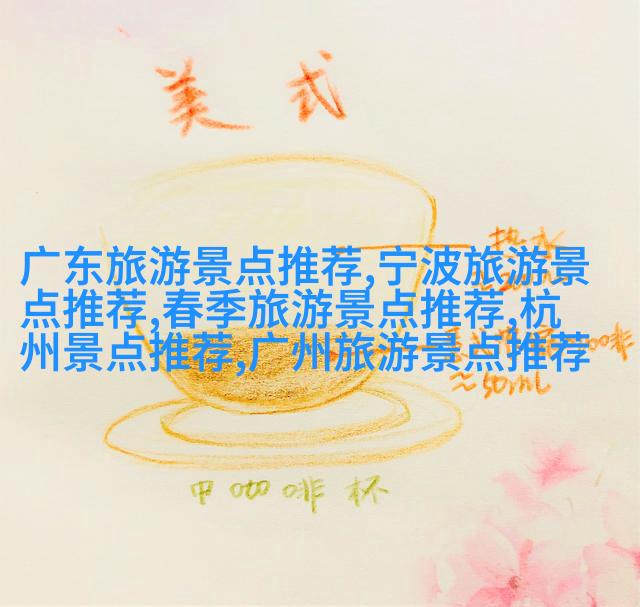 美式
热水
广东旅游景点推荐,宁波旅游景
点推荐,春季旅游景点推荐,杭
州景点推荐,广州旅游景点推荐
≈50mL
中咖啡杯